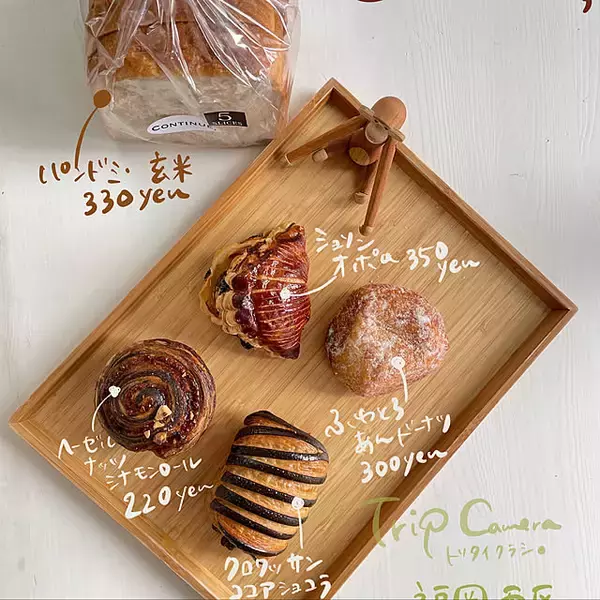 5
SLICES
CONTINUE
パンドミ・玄米
330yen
ショソン
オポム 350
yen
ふわとろ
あんドーナツ
300yen
ヘーゼル
ナッツ
シナモンロール
220yen
クロワッサン
ココアショコラ
Trip Camera
トリタイクラシ。
福岡 西区